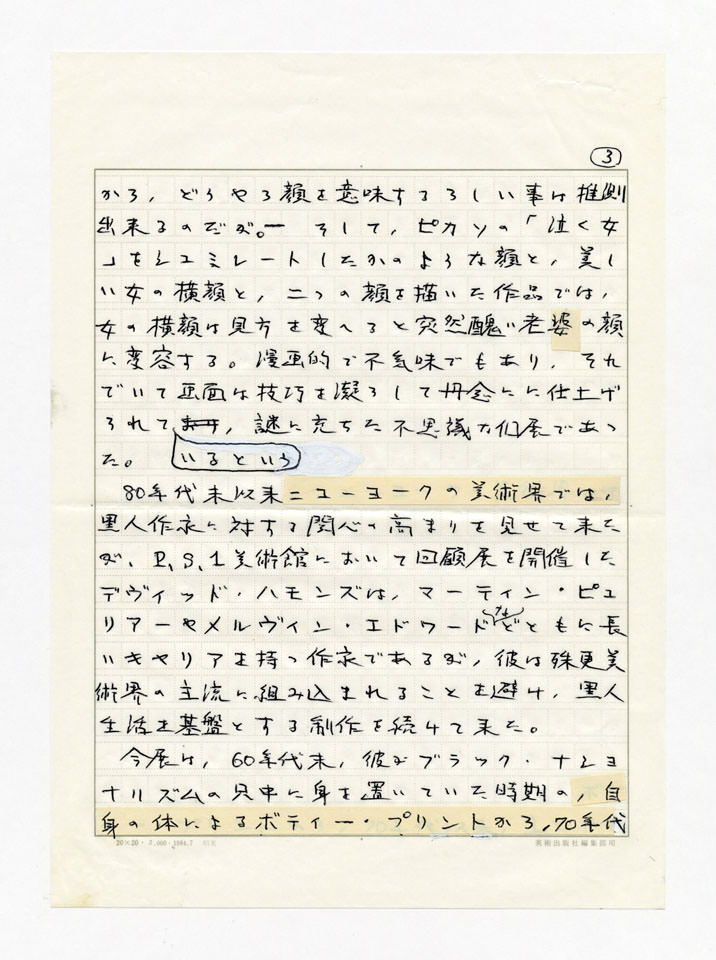 ③
から，どうやら顔を意味するらしい事は推測
出来るのだが。 そして，ピカソの「泣く女
」をシュミレートしたかのような顔と，美し
い女の横顔と，二つの顔を描いた作品では，
女の横顔は見方を変へると突然醜い老婆の顔
に変容する。漫画的で不気味でもあり，それ
でいて画面は技巧を凝らして丹念に仕上げ
られて，謎に充ちた不思議な個展であっ
た。 いるという
80年代末以来ニューヨークの美術界では，
黒人作家に対する関心の高まりを見せて来た
が，P,S,1美術館において回顧展を開催した
デヴィッド・ハモンズは，マーティン・ピュ
リアーやメルヴィン・エドワードなどともに長
いキャリアを持つ作家であるが，彼は殊更美
術界の主流に組み込まれることを避け，黒人
生活を基盤とする制作を続けて来た。
今展は，60年代末，彼がブラック・ナショ
ナリズムの只中に身を置いていた時期の，自
身の体によるボディー・プリントから，70年代
20×20・ 1984.7
美術出版社編集部用